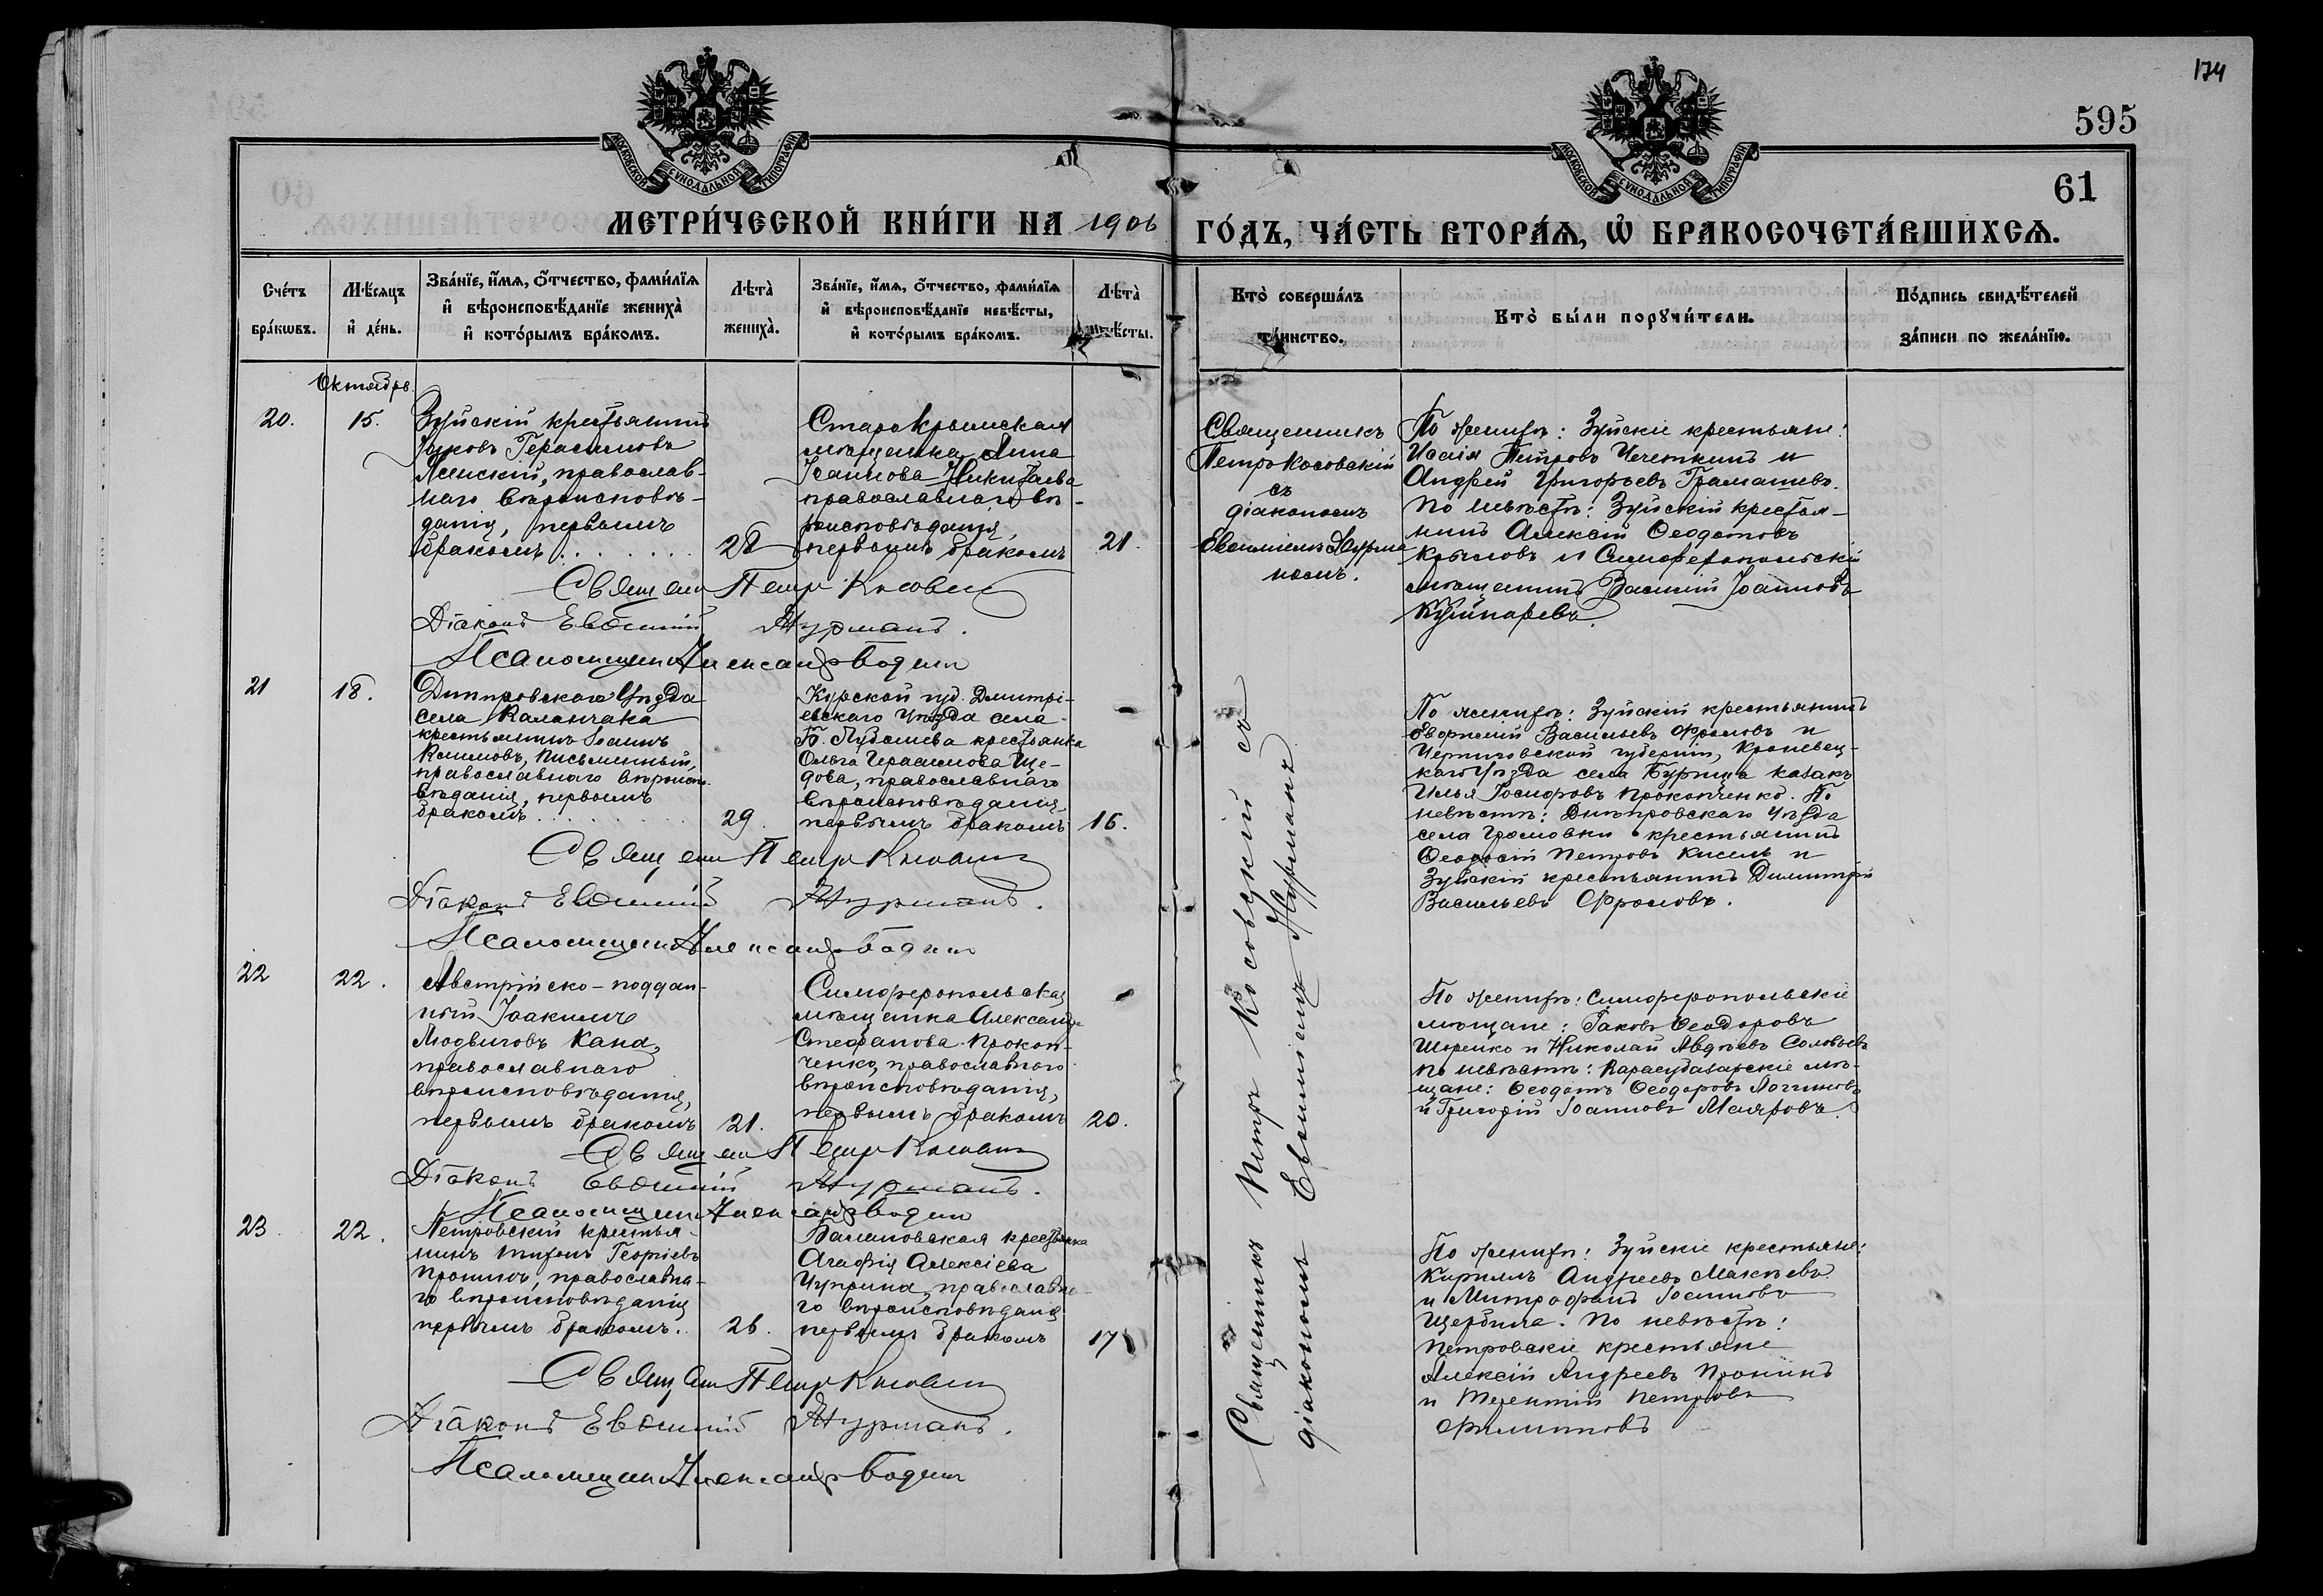 174
595
61
МОСКОВСКОЙ СѴНОДАЛЬНОЙ ТИПОГРАФІИ
МОСКОВСКОЙ СѴНОДАЛЬНОЙ ТИПОГРАФІИ
МЕТРИ́ЧЕСКОЙ КНИ́ГИ НА 1906 ГО́ДЪ, ЧА́СТЬ ВТОРА́Ѧ, Ѡ҆ БРАКОСОЧЕТА́ВШИХСѦ.
Сче́тъ
бра́кѡвъ.
Мѣ́сяцъ
и҆ де́нь.
Зва́нїе, и҆́мѧ, ѻ҆́тчество, фами́лїѧ
и҆ вѣроисповѣ́данїе жениха̀
и҆ кото́рымъ бра́комъ.
Лѣта̀
жениха̀.
Зва́нїе, и҆́мѧ, ѻ҆́тчество, фами́лїѧ
и҆ вѣроисповѣ́данїе невѣ́сты,
и҆ кото́рымъ бра́комъ.
Лѣта̀
невѣ́сты.
Кто̀ соверша́лъ
та́инство.
Кто̀ бы́ли порꙋчи́тели.
По́дпись свидѣ́телей
за́писи по жела́нїю.
Октябрь.
20.
15.
Зуйскій крестьянинъ
Іаковъ Герасимовъ
Ясинскій, православ-
наго вѣроисповѣ-
данія, первымъ
бракомъ . . . . . . .
28
Старокрымская
мѣщанка Анна
Іоаннова Никитаева
православнаго вѣ-
роисповѣданія,
первымъ бракомъ
21.
Священникъ
Петръ Косовскій
съ
діакономъ
Евѳиміемъ Журма
номъ.
По женихѣ: Зуйскіе крестьяне:
Исаія Петровъ Чечеткинъ и
Андрей Григорьевъ Грамашевъ.
По невѣстѣ: Зуйскій крестья-
нинъ Алексій Ѳеодотовъ
Крыловъ и Симферопольскій
мѣщанинъ Василій Іоанновъ
Священ Петръ Косовск
Діаконъ Евѳимій Журманъ.
Псаломщикъ Александръ Водин
21
18.
Днѣпровскаго Уѣзда
села Каланчака
крестьянинъ Іоаннъ
Климовъ, Письменный,
православнаго вѣроиспо-
вѣданія, первымъ
бракомъ . . . . . . . .
29.
Курской губ. Дмитрі-
евскаго Уѣзда села
крестьянка
Ольга Герасимова Ще-
дова, православнаго
вѣроисповѣданія,
первымъ бракомъ
16.
По женихѣ: Зуйскій крестьянинъ
Васильевъ Фроловъ и
Черниговской губерніи, Кролевец-
каго Уѣзда села казакъ
Илья Прокопченко. По
невѣстѣ: Днѣпровскаго Уѣзда
села Громовки крестьянинъ
Ѳеодосій Петровъ Кисель и
Зуйскій крестьянинъ Димитрій
Васильевъ Фроловъ.
Священ Петръ Косовск
Діаконъ Евѳимій Журманъ.
Псаломщикъ Александръ Водин
22
22.
Австрійско-поддан-
ный Іоакимъ
Людвиговъ Кана,
православнаго
вѣроисповѣданія,
первымъ бракомъ
21.
Симферопольская
мѣщанка Александра
Стефанова Прокоп-
ченко, православнаго
вѣроисповѣданія,
первымъ бракомъ
20.
Священникъ Петръ Косовскій съ
діакономъ Евѳиміемъ Журманъ
По женихѣ: Симферопольскіе
мѣщане: Іаковъ Ѳеодоровъ
и Николай Авдѣевъ Соловьевъ
По невѣстѣ: Карасубазарскіе мѣ-
щане: Ѳеодотъ Ѳеодоровъ Логгиновъ
и Григорій Іоанновъ Маяровъ.
Священ Петръ Косовск
Діаконъ Евѳимій Журманъ.
Псаломщикъ Александръ Водин
23
22.
Петровскій крестья-
нинъ Тифонъ Георгіевъ
Пронинъ, православна-
го вѣроисповѣданія
первымъ бракомъ.
26.
крестьянка
Агафія Алексіева
Чуприна, православна-
го вѣроисповѣданія
первымъ бракомъ
17
По женихѣ: Зуйскіе крестьяне:
Кириллъ Андреевъ Макѣевъ
и Митрофанъ Іоанновъ
Щербина. По невѣстѣ:
Петровскіе крестьяне
Алексій Андреевъ Пронинъ
и Терентій Петровъ
Филипповъ
Священ Петръ Косовск
Діаконъ Евѳимій Журманъ.
Псаломщикъ Александръ Водин